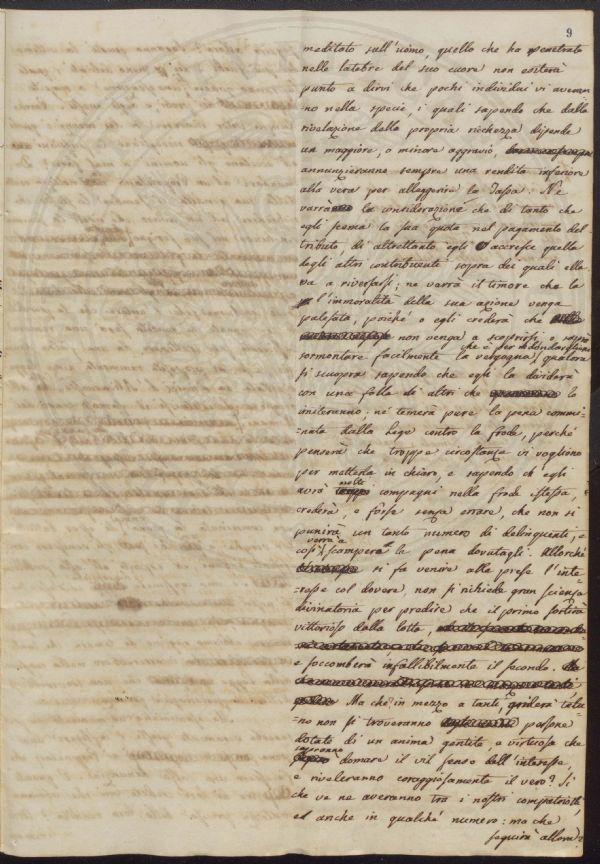 9
meditato sull'uomo, quello che ha penetrato
nelle latebre del suo cuore non esiterà
punto a dirvi che pochi individui vi averan
no nella specie, i quali sapendo che dalla
rivelazione della propria ricchezza dipende
un maggiore, o minore aggravio,
annunzieranno sempre una rendita inferiore
alla vera per alleggerire la Tassa. Nè
varrà la considerazione che di tanto che
egli scema la sua quota nel pagamento del
tributo, di altrettanto egli accresce quella
degli altri contribuenti sopra dei quali ella
va a riversarsi; ne varrà il timore che la
l'immoralità della sua azione venga
palesata, poiché o egli crederà che
non venga a scoprirsi, o saprà
che è per ridondarglisene
sormontare facilmente la vergogna, qualora
si scuopra sapendo che egli la dividerà
con una folla di altri che lo
imiteranno: nè temerà pure la pena commi-
=nata dalla Lege contro la frode, perché
penserà che troppe circostanze vi vogliono
per metterla in chiaro, e sapendo ch'egli
molti
avrà troppo compagni nella frode istessa,
crederà, e forse senza errare, che non si
punirà un tanto numero di delinquenti, e
verrà a
così scamperà la pena dovutagli. Allorché
si fa venire alle prese l'inte-
=resse col dovere, non si richiede gran scienza
divinatoria per predire che il primo sortirà
vittorioso dalla lotta,
e soccomberà infallibilmente il secondo.
Ma che in mezzo a tanti, griderà talu-
=no non si troveranno persone
dotate di un anima gentile, e virtuosa che
sapranno
domare il vil senso dell'interesse,
e riveleranno coraggiosamente il vero? Si
che ve ne averanno tra i nostri compatriotti,
ed anche in qualche numero: ma che
seguirà allora?